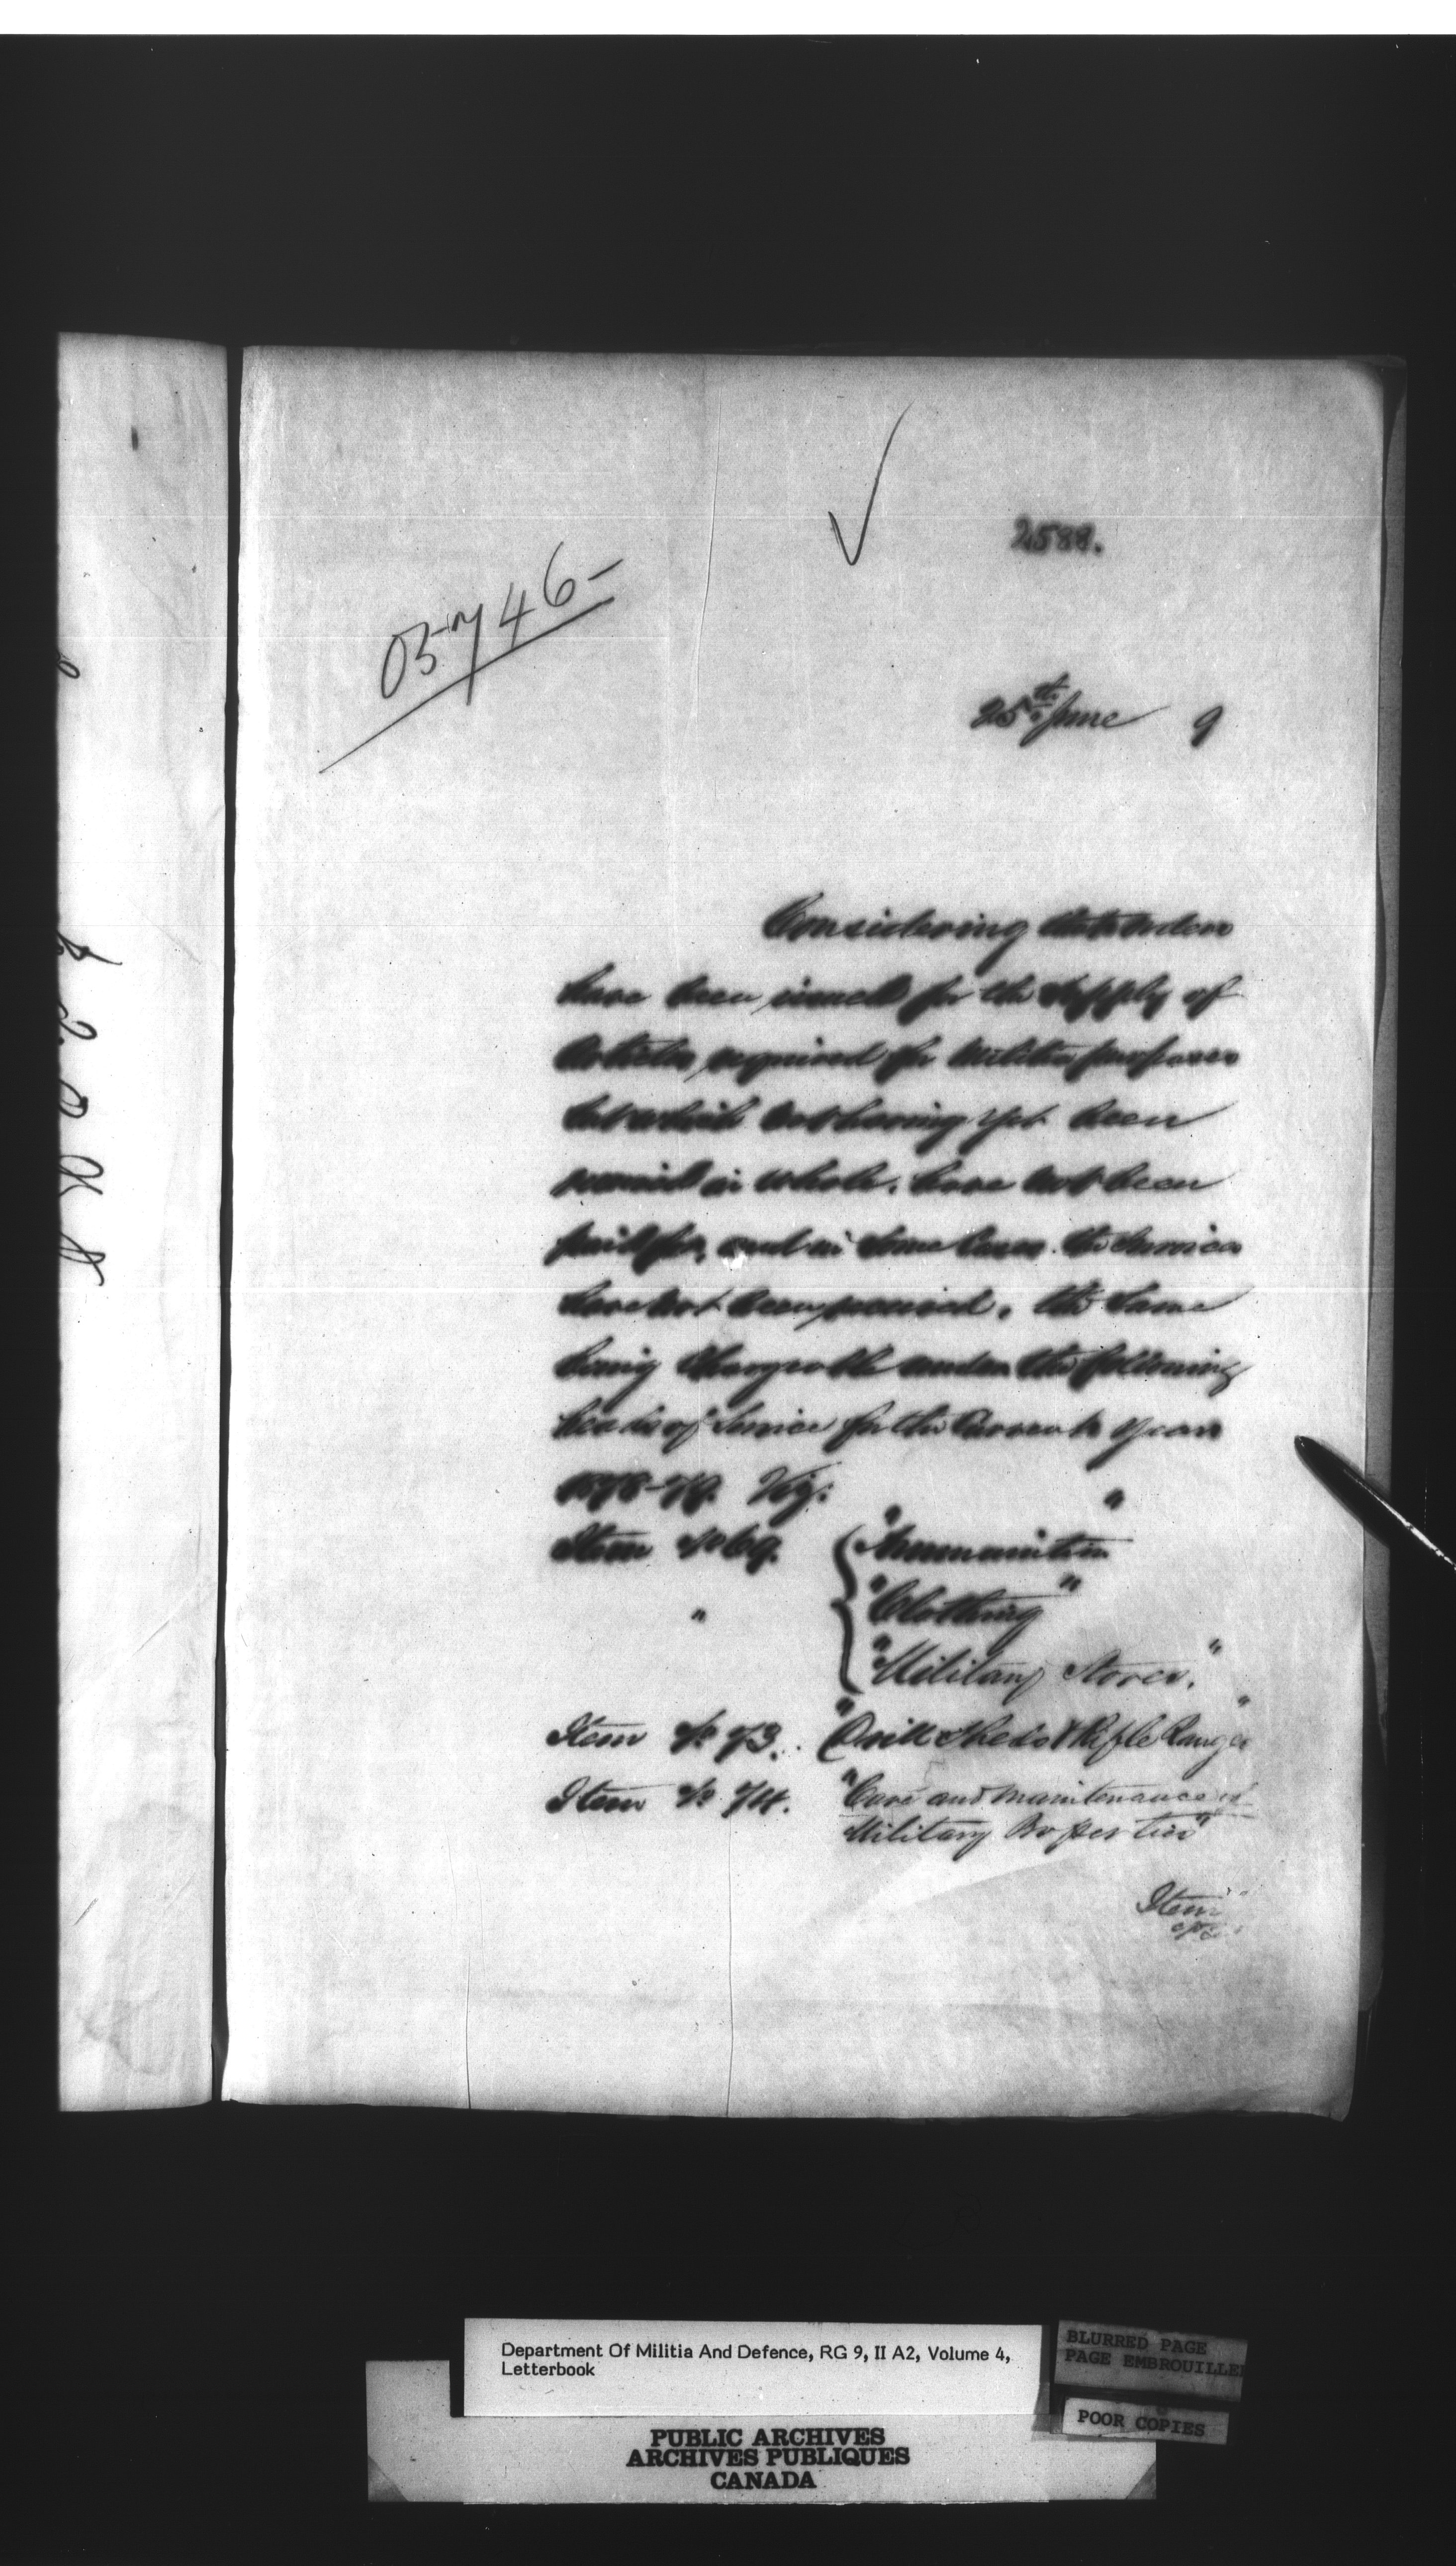 2588.
05746-
25th June 9
Considering that orders
have been issued for the supply of
Articles, required for Militia purposes
but which not having yet been
received in whole, have not been
paid for, and in some cases the Services
have not been received, the same
being chargeable under the following
heads of Service for the Current year
1878-79. Viz:
Item No 69. { "Ammunition"
" "Clothing"
"Military Stores."
Item No 73. "Drill Sheds & Rifle Ranges"
Item No 74. "Care and maintenance of
Military Properties"
Item
Department Of Militia And Defence, RG 9, II A2, Volume 4,
Letterbook
BLURRED PAGE
PAGE EMBROUILLEE
POOR COPIES
PUBLIC ARCHIVES
ARCHIVES PUBLIQUES
CANADA